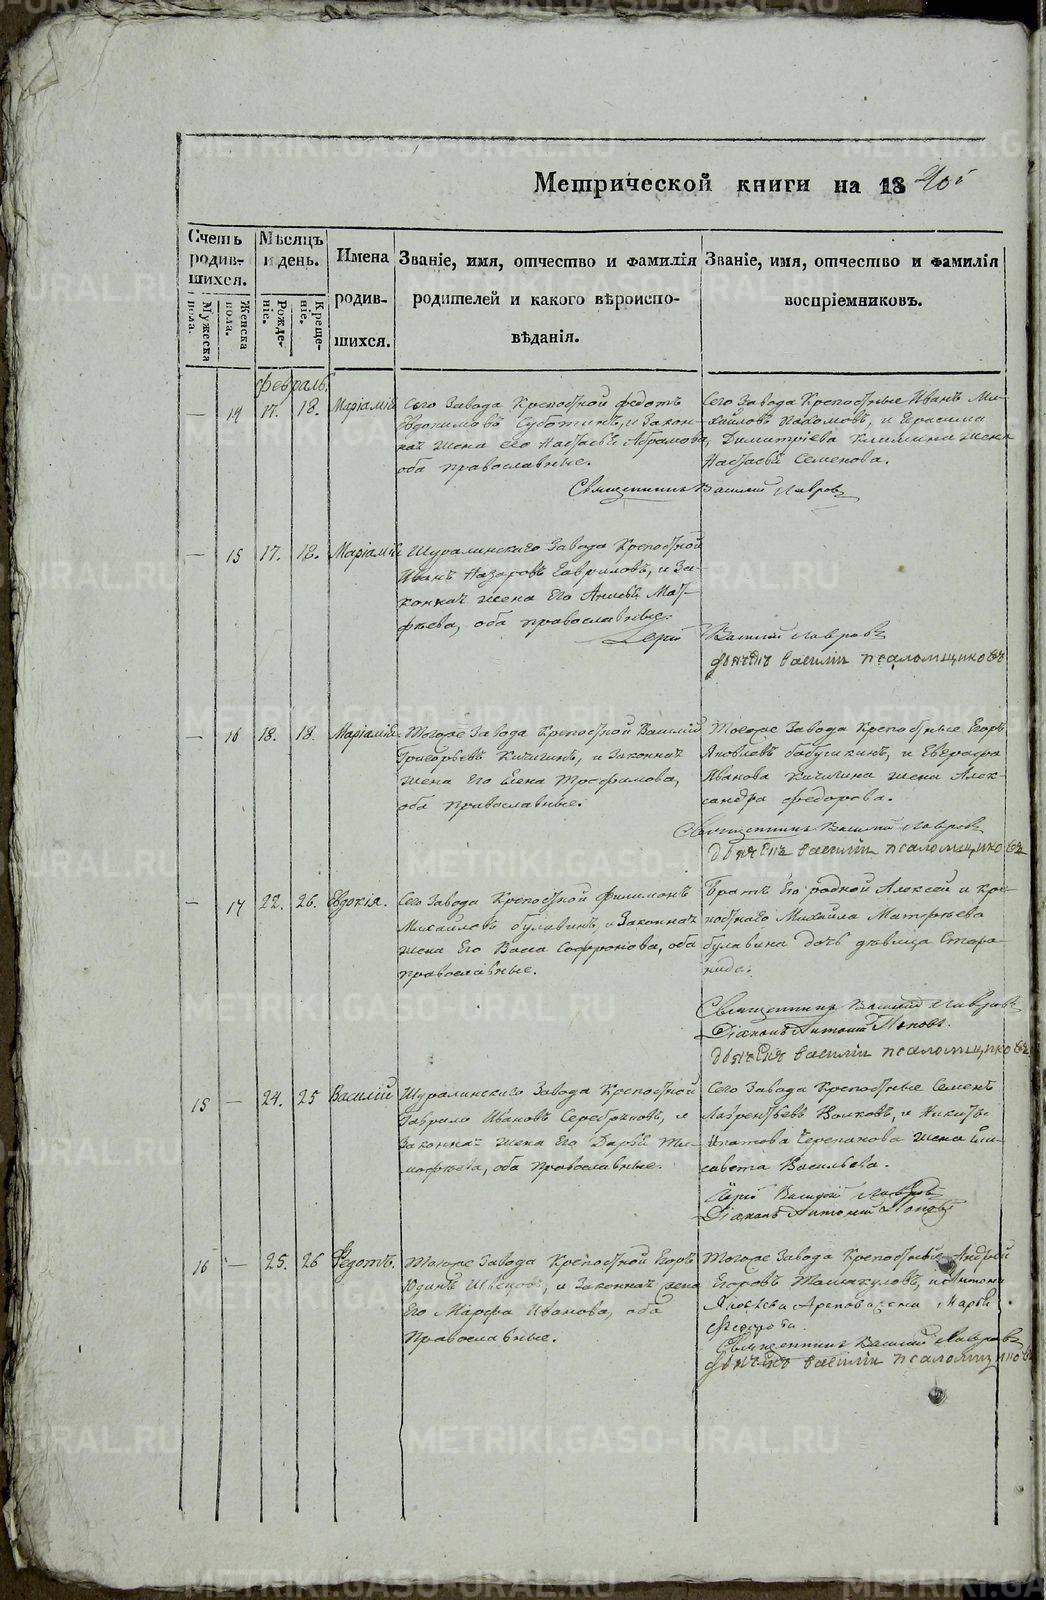 Метрической книги на 1840й
Счетъ родившихся.
Мѣсяцъ и день.
Имена родившихся.
Званіе, имя, отчество и фамилія родителей и какого вѣроисповѣданія.
Званіе, имя, отчество и фамилія воспріемниковъ.
Мужеска пола.
Женска пола.
Рожденіе.
Крещеніе.
Февраль.
— 14 17. 18. Маріамія
Сего Завода Крепостной Федотъ
Евдокимовъ Суботинъ, и Закон-
ная жена его Настасья Абрамова,
оба православные.
Сего Завода Крепостные Иванъ Ми-
хайловъ Пахомовъ, и Герасима
Димитріева Климина жена
Настасья Семенова.
Священникъ Василій Лавровъ
— 15 17. 18. Маріамія
Шуралинскаго Завода Крепостной
Иванъ Назаровъ Гавриловъ, и За-
конная жена Его Анисья Мат-
фѣева, оба православные.
Іерей Василій Лавровъ
дьячекъ василіи псаломщиковъ
— 16 18. 18. Маріамія
Тогоже Завода Крепостной Василій
Григорьевъ Кичигинъ, и Законная
жена Его Елена Трофимова,
оба православные.
Тогоже Завода Крепостные Егоръ
Яковлевъ бабушкинъ, и Евграфа
Иванова Кичигина жена Алек-
сандра Федорова.
Священникъ Василій Лавровъ
дьячекъ василіи псаломщиковъ
— 17 22. 26. Евдокія.
Сего Завода Крепостной Филимонъ
Михайловъ булавинъ, и Законная
жена Его Васса Софронова, оба
православные.
Братъ Его родной Алексей и кре-
постнаго Михайла Матфѣева
булавина дочь дѣвица Степа-
нида.
Священникъ Василій Лавровъ
Діаконъ Антоній Поповъ.
дьячекъ василіи псаломщиковъ
15 — 24. 25 Василій
Шуралинскаго Завода Крепостной
Гаврило Ивановъ Серебряковъ, и
Законная жена Его Дарья Ти-
мофѣева, оба православные.
Сего Завода Крепостные Семенъ
Лаврентьевъ Волковъ, и Никиты
Ипатова Черепанова жена Ели-
савета Васильева.
Іерей Василій Лавровъ
Діаконъ Антоній Поповъ
16 — 25. 26 Федотъ.
Тогоже Завода Крепостной Егоръ
Юдинъ Швецовъ, и Законная жена
Его Марфа Иванова, оба
Православные.
Тогоже Завода Крепостные Андрей
Егоровъ Толмкуловъ, и Антона
Яковлева Арапова жена Марья
Федорова.
Священникъ Василій Лавровъ
дьячекъ василіи псаломщиковъ
METRIKI.GASO-URAL.RU